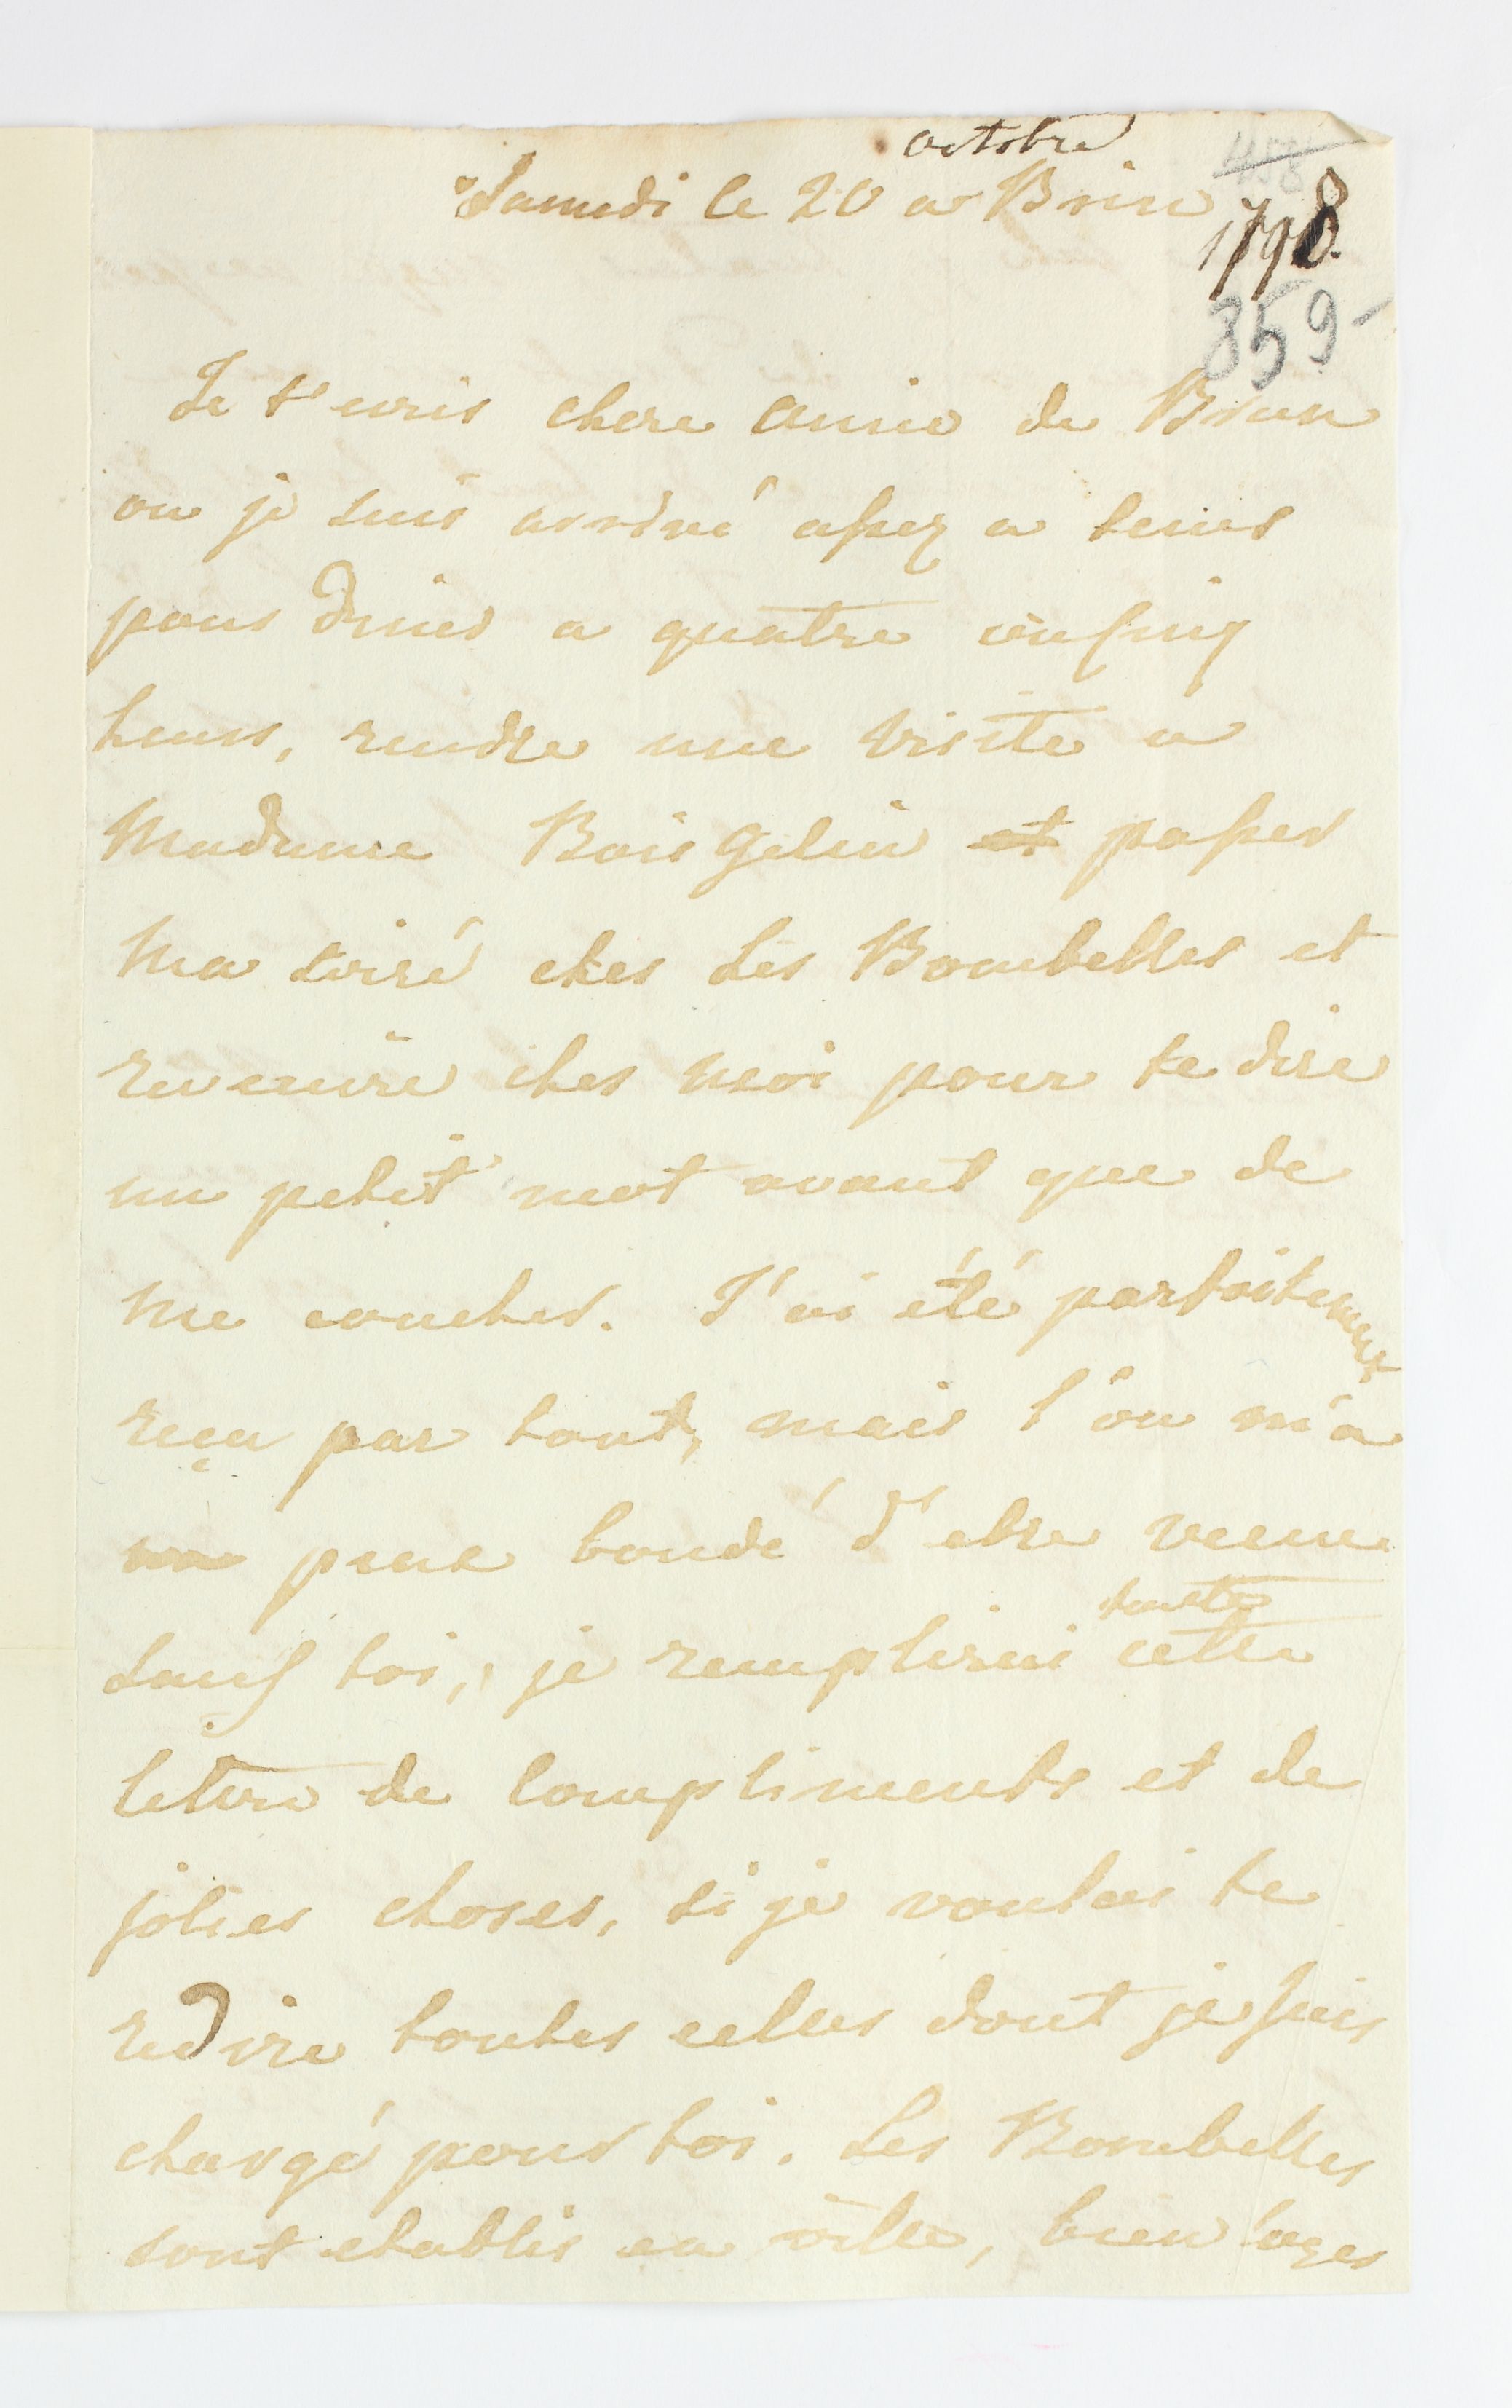 octobre
Samedi le 20 a Brin
458
1798.
359
Je t'ecris chere amie de Brun
ou je suis arrivé assez a tems
pour diner a quatre
heurs, rendre une visite a
Madame Boisgelin et passer
ma soiré ches Les Bombelles et
revenire ches moi pour te dire
un petit mot avant que de
me coucher. J'ai été parfaitement
reçu par tout, mais l'on m'a
un peux boudé d'etre venue
sans toi, je remplirai toute cette
lettre de compliments et de
jolies choses, si je voulais te
redire toutes celles dont je suis
chargé pour toi. Les Bombelles
sont etablis en ville, bien loges